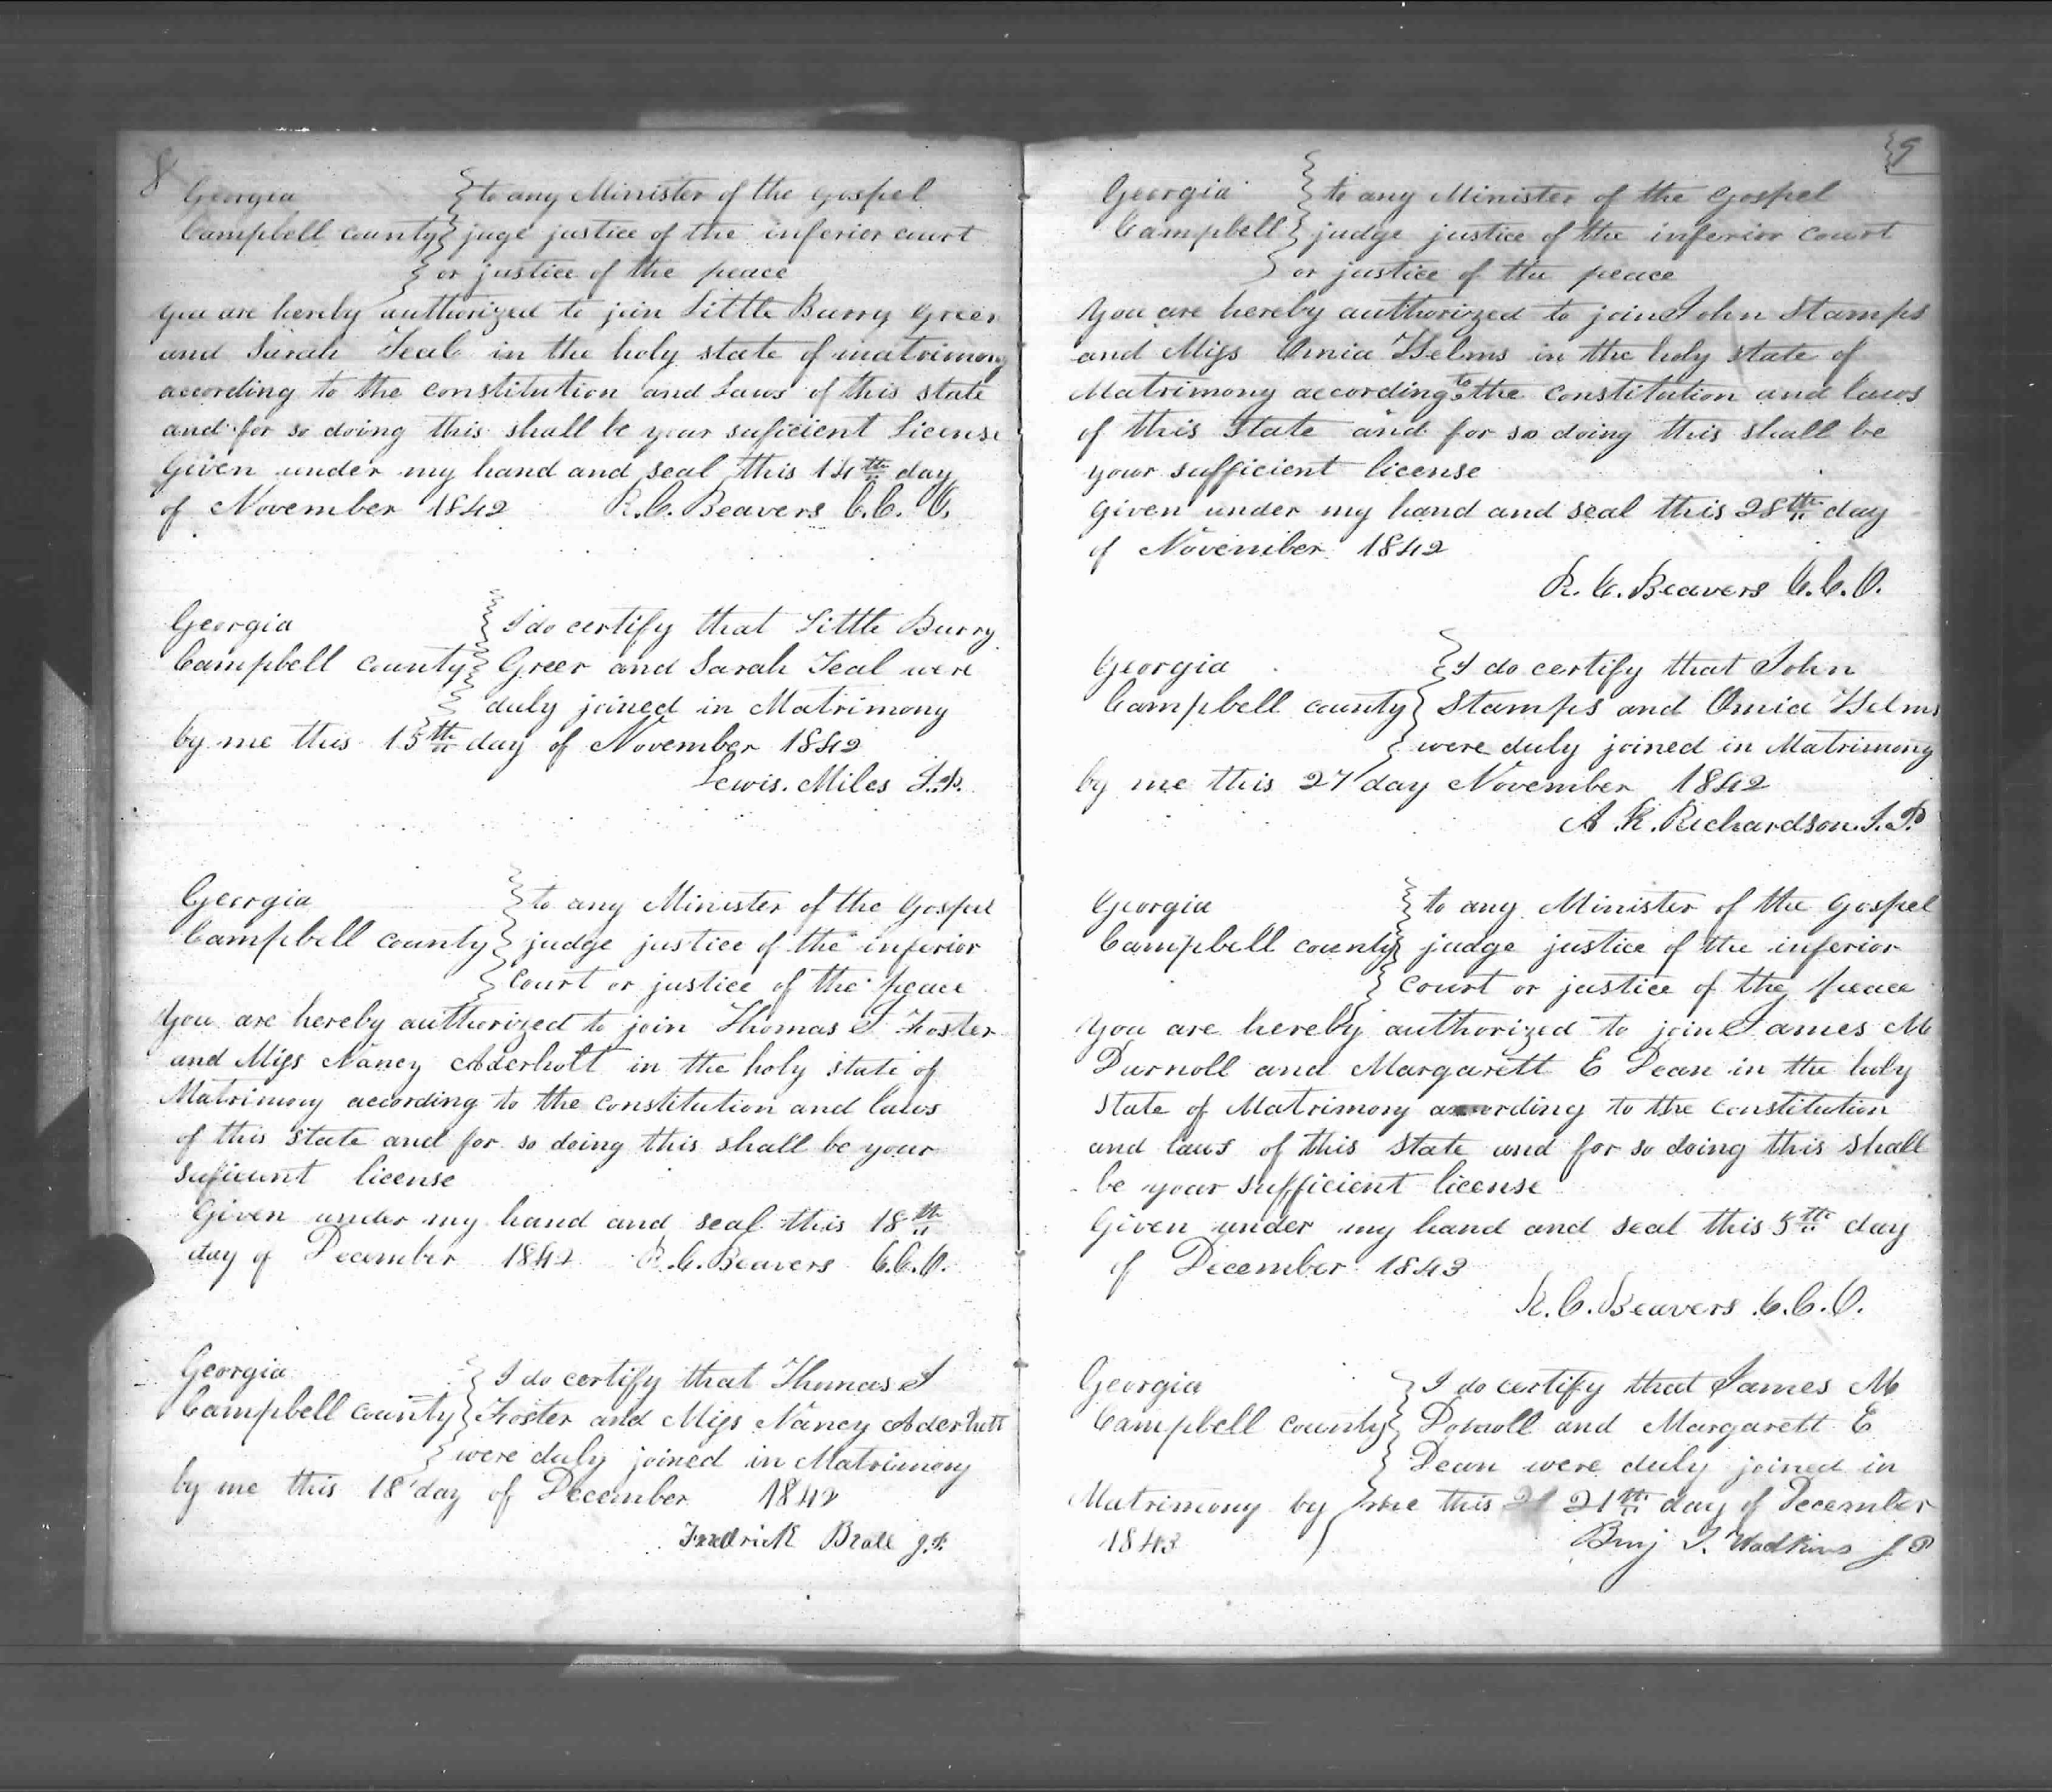 8
Georgia } to any Minister of the gospel
Campbell county } juge justice of the inferior court
} or justice of the peace
you are hereby authorized to join Little Burry Greer
and Sarah Teal in the holy state of matrimony
according to the constitution and Laws of this state
and for so doing this shall be your suficient License
Given under my hand and seal this 14th day
of November 1842 R. C. Beavers C.C.O.
Georgia } I do certify that Little Burry
Campbell county } Greer and Sarah Teal were
} duly joined in Matrimony
by me this 15th day of November 1842
Lewis. Miles J.P.
Georgia } to any Minister of the Gospel
Campbell county } judge justice of the inferior
} court or justice of the peace
You are hereby authorized to join Thomas J Foster
and Miss Nancy Aderholt in the holy state of
Matrimony according to the constitution and laws
of this state and for so doing this shall be your
suficient license
Given under my hand and seal this 18th
day of December 1842 R. C. Beavers C.C.O.
Georgia } I do certify that Thomas J
Campbell county } Foster and Miss Nancy Aderholt
} were duly joined in Matrimony
by me this 18 day of December 1842
Fredrick Beall J.P.
9
Georgia } to any Minister of the Gospel
Campbell } judge justice of the inferior court
} or justice of the peace
You are hereby authorized to join John Stamps
and Miss Omia Helms in the holy state of
Matrimony according to the constitution and laws
of this State and for so doing this shall be
your sufficient license
Given under my hand and seal this 28th day
of November 1842
R. C. Beavers C.C.O.
Georgia } I do certify that John
Campbell county } Stamps and Omia Helms
} were duly joined in Matrimony
by me this 27 day November 1842
A. K. Richardson. J.P.
Georgia } to any Minister of the Gospel
Campbell county } judge justice of the inferior
} court or justice of the peace
You are hereby authorized to join James M
Durnoll and Margarett E Dean in the holy
State of Matrimony according to the constitution
and laws of this State and for so doing this shall
be your sufficient license
Given under my hand and seal this 5th day
of December 1843
R. C. Beavers C.C.O.
Georgia } I do certify that James M
Campbell county } and Margarett E
} Dean were duly joined in
Matrimony by me this 21th day of December
1843 Benj T. Wadkins J P